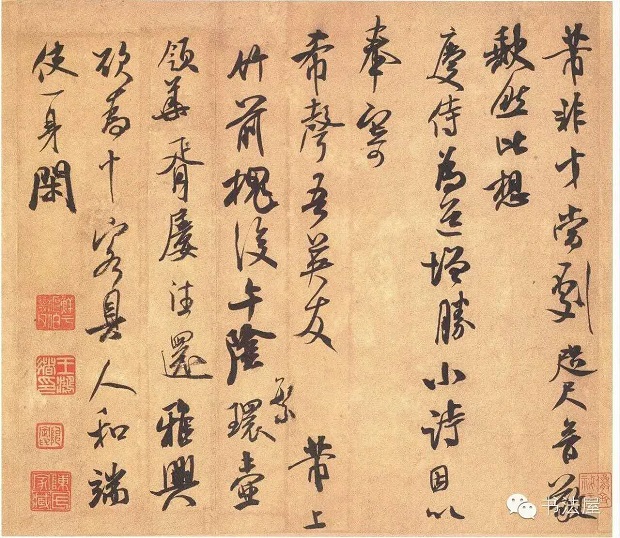 芾非才當劇咫尺音敬
闕然比想
慶侍為道增勝小詩因以
奉寄
希聲吾英友 芾上
竹前槐後午陰環壺
繁
領華胥屢往還雅興
欲為十客具人和端
使一身閑
陳氏家藏
书法屋